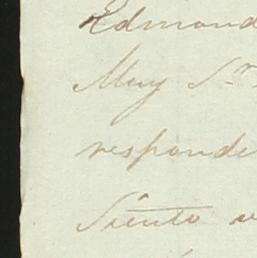 Edmond
Muy Sr
responde
Siento